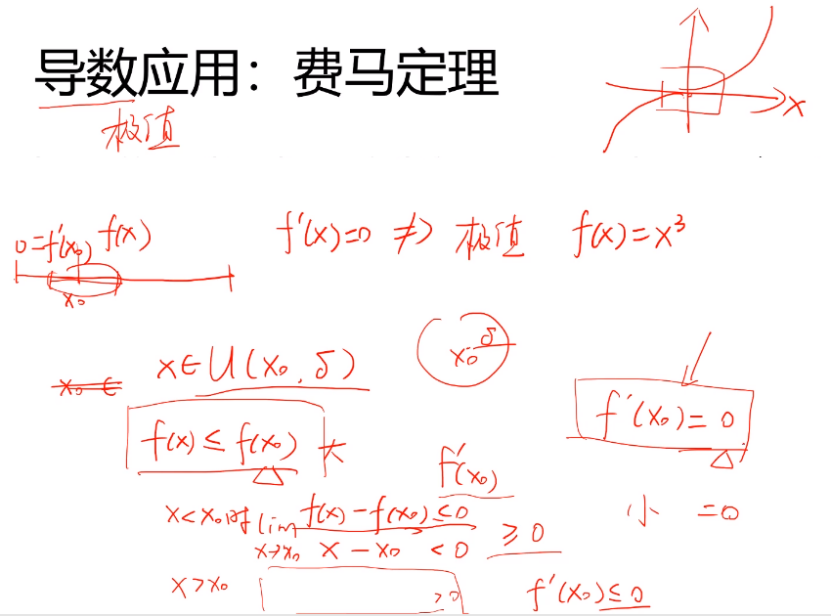 导数应用：费马定理
极值
x
0=f'(x₀) f(x)
x₀
f'(x)=0 ⇏ 极值 f(x)=x³
x₀ ∈
x∈U(x₀,δ)
x₀ δ
f(x)≤f(x₀) 大
f'(x₀)=0
f'(x₀)
小 =0
x<x₀时 lim f(x)-f(x₀)≤0
x→x₀ x-x₀ <0 ≥0
x>x₀ >0 f'(x₀)≤0